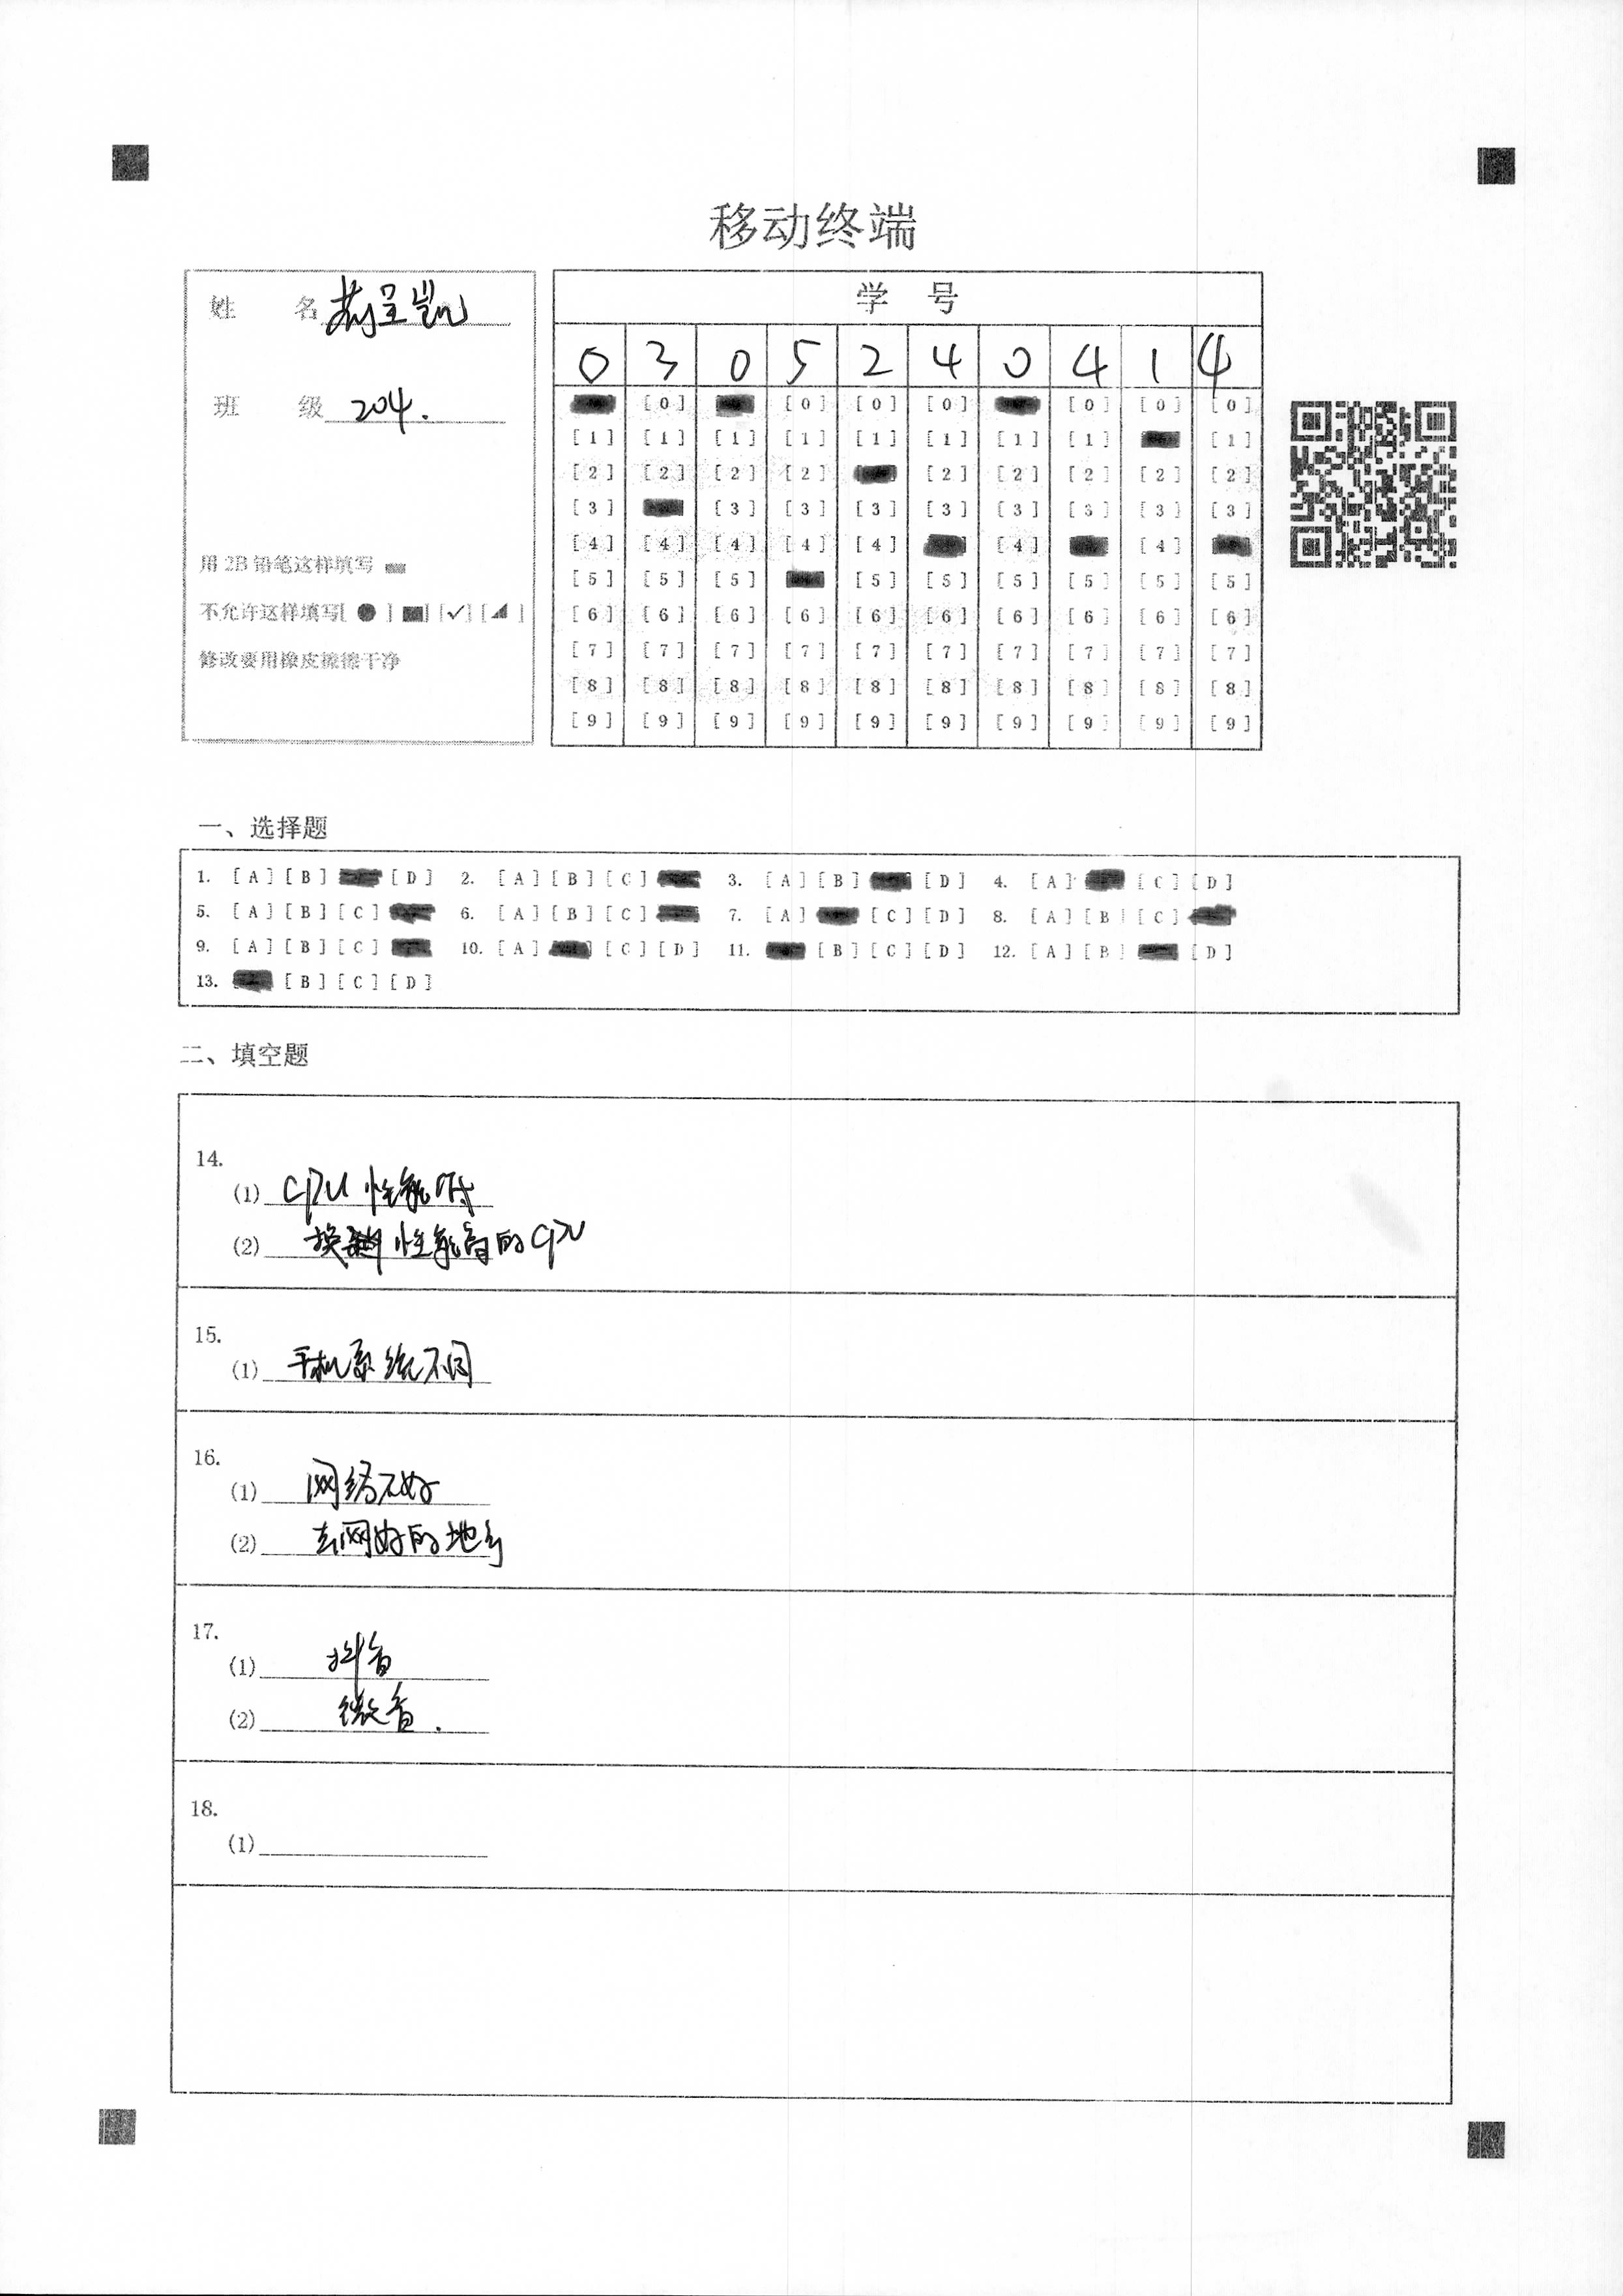 移动终端
姓 名
班 级 204.
用 2B 铅笔这样填写
不允许这样填写[ ● ] ■] [✓] [◢ ]
修改要用橡皮擦擦干净
学 号
0 3 0 5 2 4 0 4 1 4
[0] [0] [0] [0] [0] [0] [0]
[1] [1] [1] [1] [1] [1] [1] [1] [1]
[2] [2] [2] [2] [2] [2] [2] [2] [2]
[3] [3] [3] [3] [3] [3] [3] [3] [3]
[4] [4] [4] [4] [4] [4] [4]
[5] [5] [5] [5] [5] [5] [5] [5] [5]
[6] [6] [6] [6] [6] [6] [6] [6] [6] [6]
[7] [7] [7] [7] [7] [7] [7] [7] [7] [7]
[8] [8] [8] [8] [8] [8] [8] [8] [8] [8]
[9] [9] [9] [9] [9] [9] [9] [9] [9] [9]
一、选择题
1. [A] [B] [D] 2. [A] [B] [C] 3. [A] [B] [D] 4. [A] [C] [D]
5. [A] [B] [C] 6. [A] [B] [C] 7. [A] [C] [D] 8. [A] [B] [C]
9. [A] [B] [C] 10. [A] [C] [D] 11. [B] [C] [D] 12. [A] [B] [D]
13. [B] [C] [D]
二、填空题
14.
(1) CPU 性能低
(2) 换 性能高的CPU
15.
(1) 手机系统不同
16.
(1) 网络不好
(2) 去网好的地方
17.
(1) 抖音
(2) 微音.
18.
(1)